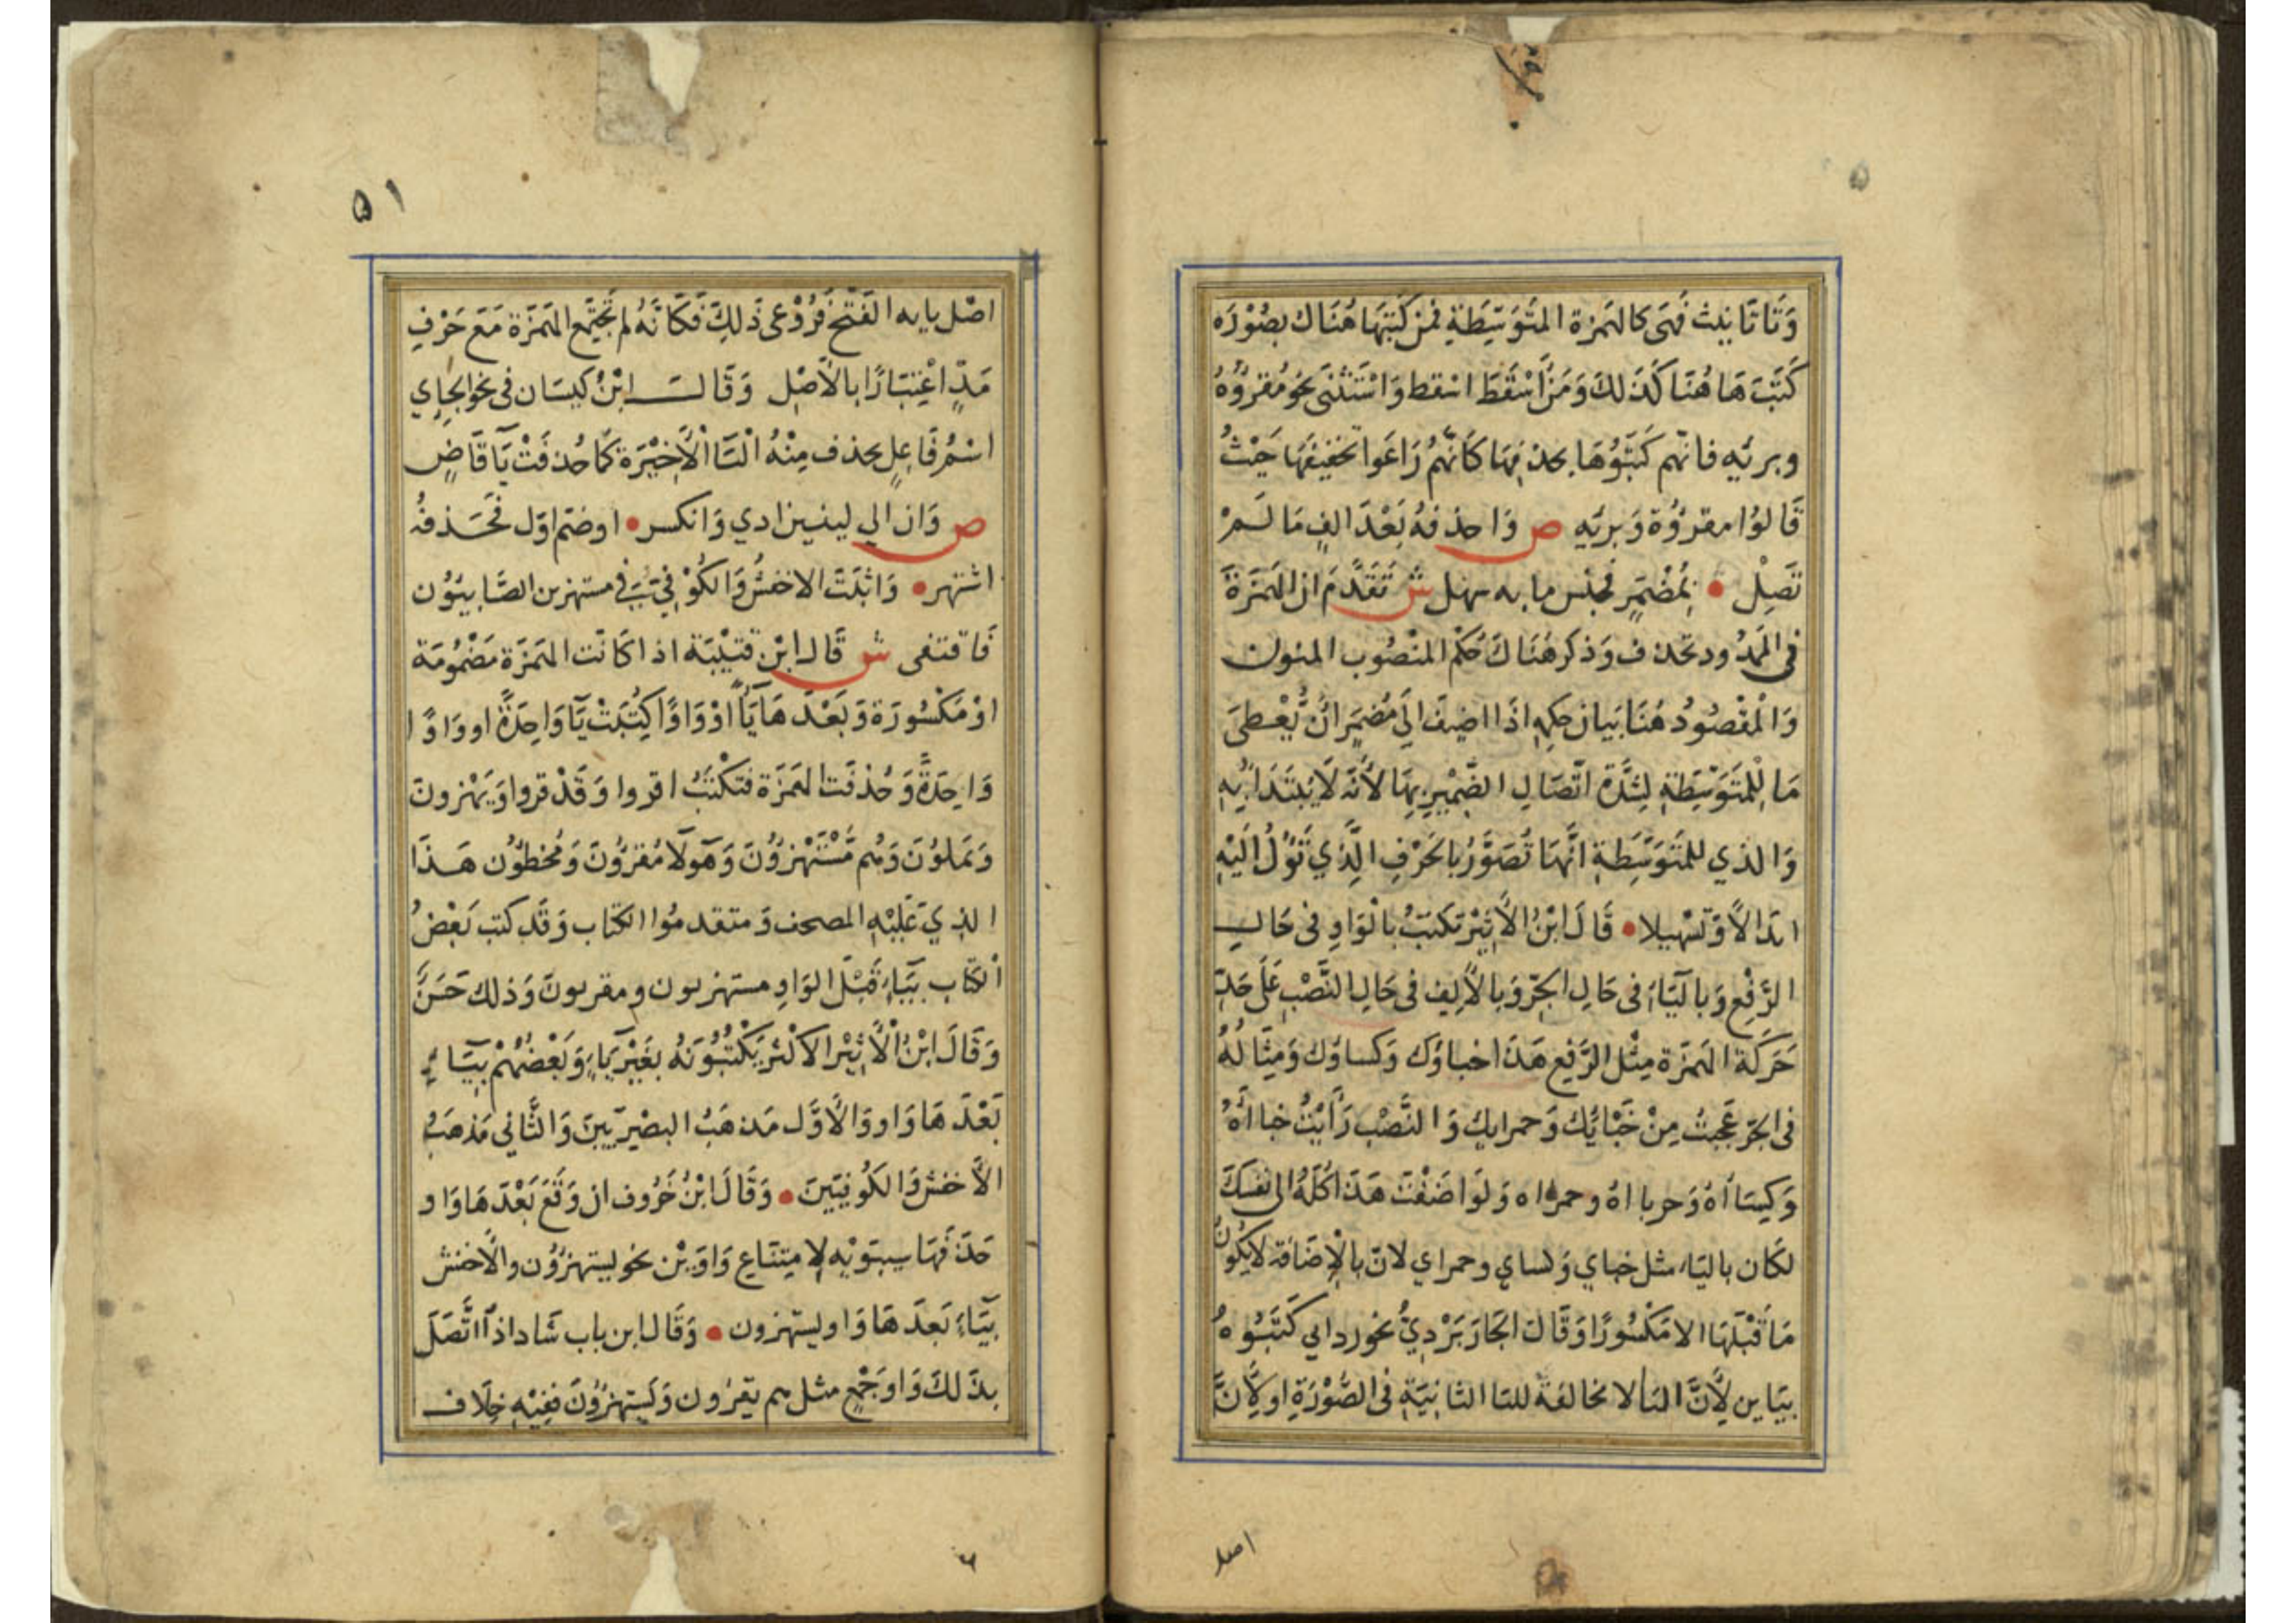 وَتَا تَانيث فَهيَ كالهَمزة المتَوسّطَةِ فمَن كَتبَهَا هُنَاك بصُوْرَة
كَتَبَ هَا هُنَا كَذَلكَ وَمَن اَسْقَطَ اسقط وَاسْتَثنَى نحو مُقرُؤُهُ
وبريّه فانّهم كَتبَوُهَا بحذفِهَا كَانّهُم رَاعَوا تخفيفَهَا حَيْثُ
قَالوُا مقرُؤُة وَبريّه ص وَاحذفهُ بَعْدَ الفٍ مَا لَمْ
تَصِلْ • بمُضْمَرٍ فجنس ما به سهل ش تَقَدَّمَ ان الهَمَزَةَ
في المَمدُود تحذف وَذكر هُنَاكَ حُكْم المنْصُوب المنون
وَالْمَقْصُودُ هُنَا بَيان حكمِهِ اذَا اضيفَ اليَ مُضمَرٍ انْ يُعْطىَ
مَا لِلمتَوَسِّطَةِ لِشدَّة اتّصَالِ الضَّمِيْرِ بهَا لأَنّه لاَ يُبتَدَأُ بِهِ
وَالذي للمتَوَسِّطَةِ انَّهَا تُصَوَّرُ بالحَرْفِ الَّذِي تَؤُلُ اِلَيْهِ
ابدَالاً وَتَسْهيلا • قَالَ ابْنُ الأَثِيْر تكتبُ بالْوَاوِ في حَالِ
الرَّفْعِ وَبالْيَاءِ في حَالِ الجَرّ وَبالأَلِف في حَالِ النَّصْبِ عَلَى حَدِّ
حَرَكَة الهَمزَة مِثْل الرَّفِعِ هَذَا خباؤك وَكساؤك وَمِثَالهُ
في الجَرّ عَجبتُ مِنْ خَبَائِك وَحمرايك وَالنَّصْب رَأَيْتُ خباأَهُ
وَكِسَاأهُ وَحرباأهُ وحمراه وَلَو اضَفْتَ هَذَا كُلّهُ الى نفسكَ
لكَان باليَاءِ مثل خباي وَكساي وحمراي لانّ بالإضَافة لا يَكُونُ
مَا قَبْلَهَا الا مَكْسُورًا وَقَالَ الجَارَبَرْدِيُّ نحو رداىي كَتَبوُهُ
بيَاين لأَنَّ اليَا الا مخالفَةً لليَا الثانيَةِ في الصُّوْرَةِ او لأَنَّ
اصل
۵۱
اصْل يايه الفَتْح فَرُوْعى ذَلِكَ فَكَانّهُ لم تَجْتَمِع الهَمَزَة مَعَ حَرْفِ
مَدٍّ اعْتِبَارًا بالأَصْلِ وَقَالَ ابْنُ كيسَان في نحو الجاءِي
اسْمُ فَاعِلٍ يحذف مِنْهُ اليَاالأَخِيْرَة كَمَا حُذفَتْ يَآ قَاضٍ
ص وَان الي لينين ادي وَانكسر • اوضمّ اوّل فَحَذفُهُ
اشتهر • وَاثبَتَ الاخفشُ وَالكُوْفيّ يَا في مستهزين الصَّابيوُن
فَاقتفى ش قَال ابْن قتَيْبَة اذا كَانَت الهَمَزَة مَضْمُومَة
اوْ مَكْسُورَة وَبَعْدَ هَايَاً اوْ وَاوًا كِتُبَتْ يَآ وَاحِدَةً او وَاوًا
وَاحِدَةً وَحُذفَت الهَمَزَة فتكْتَبُ اقروا وَقَدْ قروا وَيَهْزونَ
وَيَملوُنَ وَهُم مُسْتَهْزؤُنَ وَهَولَا مُقرؤُنَ وَمُخطؤُن هَذَا
الذِي عَلَيْهِ المصحف وَمتقدموُا الكتاب وَقَدْ كتب بَعْضُ
الكتاب بيَاءٍ قَبْلَ الوَاوِ مستهزيون ومقريونَ وَذلك حَسَنٌ
وَقَالَ ابْنُ الأَثِيْر الاكْثر يَكْتبُوْنَهُ بغَيْر يَاءٍ وَبَعْضُهُمْ بيَاءٍ
بَعْدَ هَا وَاو وَالأَوَّل مَذهَبُ البصْرِيّينَ وَالثَّاني مَذهَبُ
الأَخفش وَالكُوفيّينَ • وَقَالَ ابْنُ خَرُوف ان وَقَعَ بَعْدَ هَا وَاو
حَذَفهَا سيبَوَيْهِ لامِتنَاعِ وَاوَيْن نحو يستهزؤُن والأَخفش
بيَاءٍ بَعدَ هَا وَاو يستهزون • وَقَال ابن باب شَاد اذَا اتَّصَلَ
بذَلكَ وَاو جَمْعٍ مثل هم يقرؤن وَيَستهزؤُنَ ففِيْهِ خِلَاف